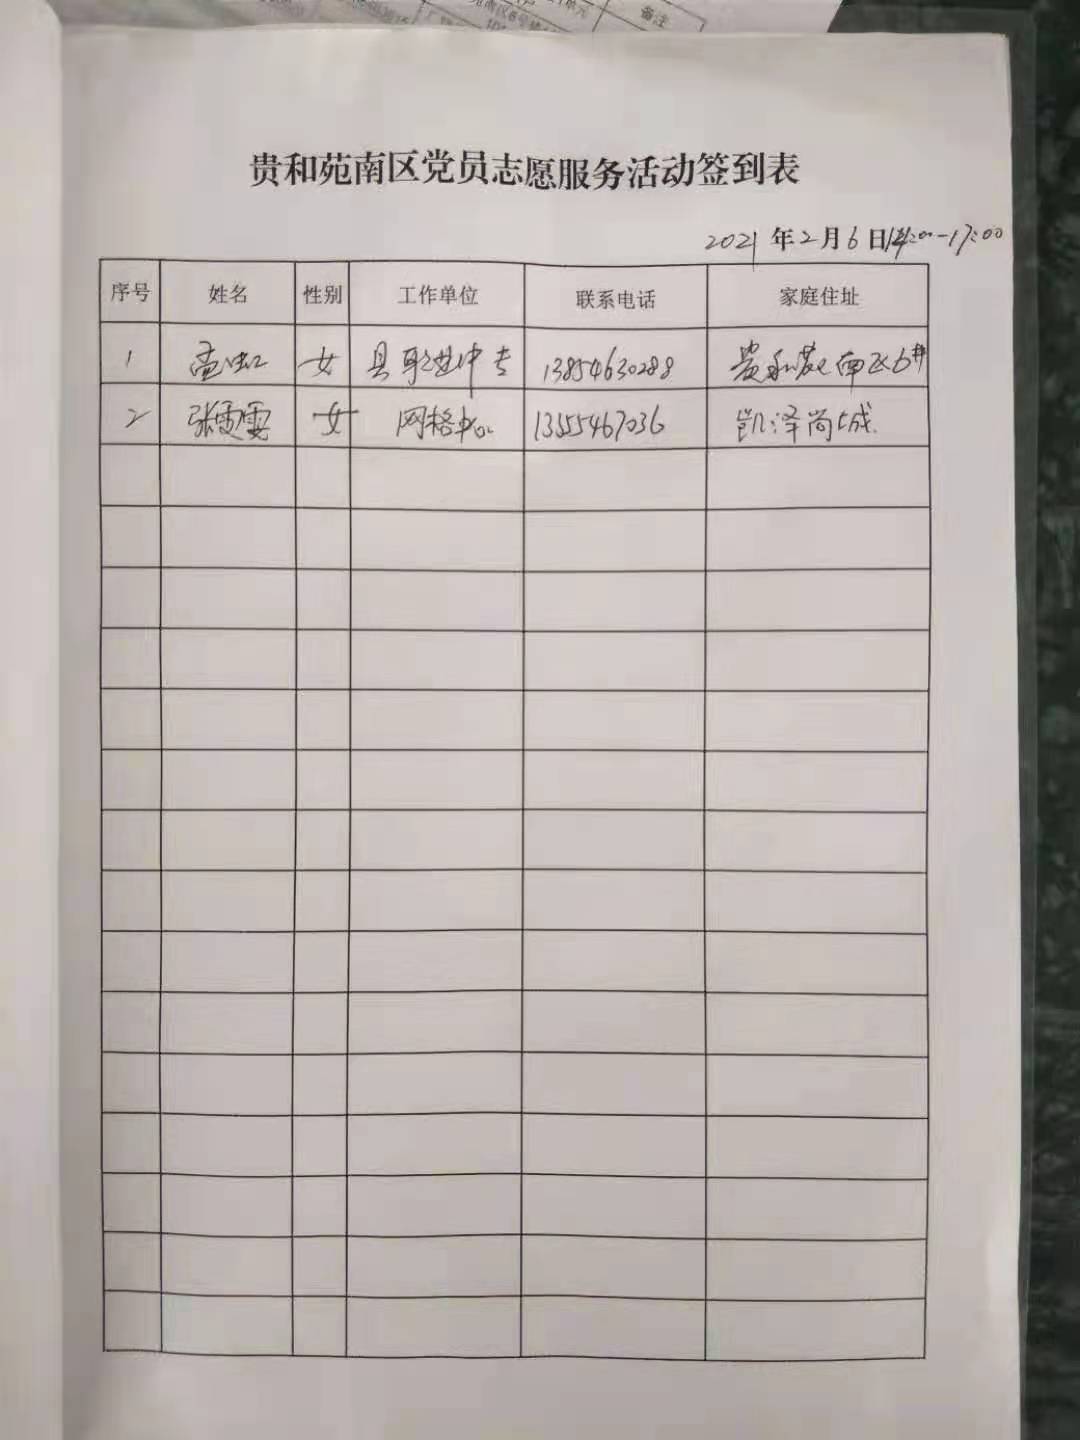 备注
贵和苑南区党员志愿服务活动签到表
2021年2月6日14:00-17:00
序号 姓名 性别 工作单位 联系电话 家庭住址
1 孟虹 女 县职业中专 13854630288 贵和苑南区6#
2 张雯雯 女 网格中心 13555467036 凯泽尚城